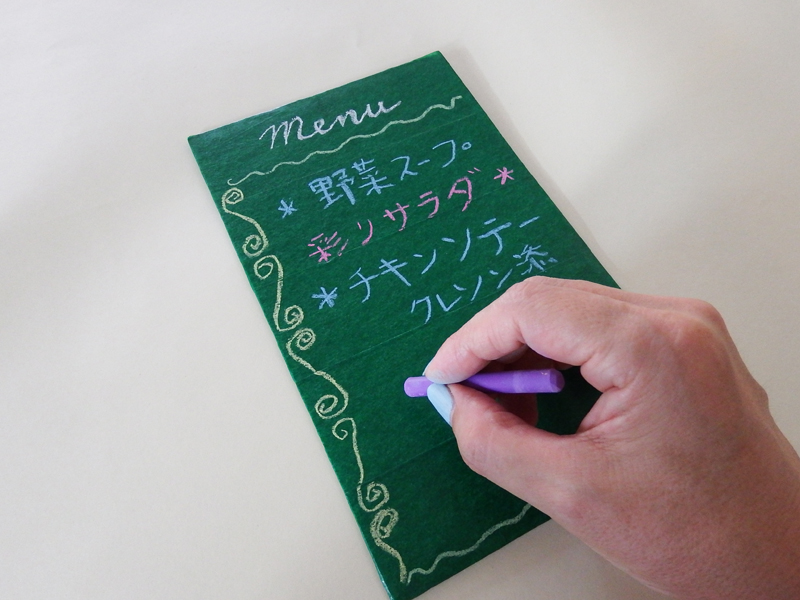 Menu
* 野菜スープ
彩りサラダ *
* チキンソテー
クレソン添